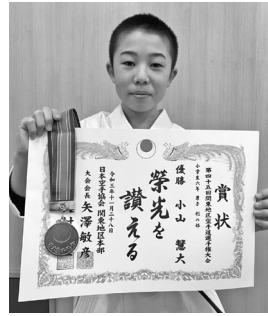 賞状
第四十五回関東地区空手道選手権大会
小学生六年 男子 形の部
優勝 小山 馨大
栄光を
讃える
令和三年十一月二十八日
日本空手協会 関東地区本部
大会会長 矢澤敏彦